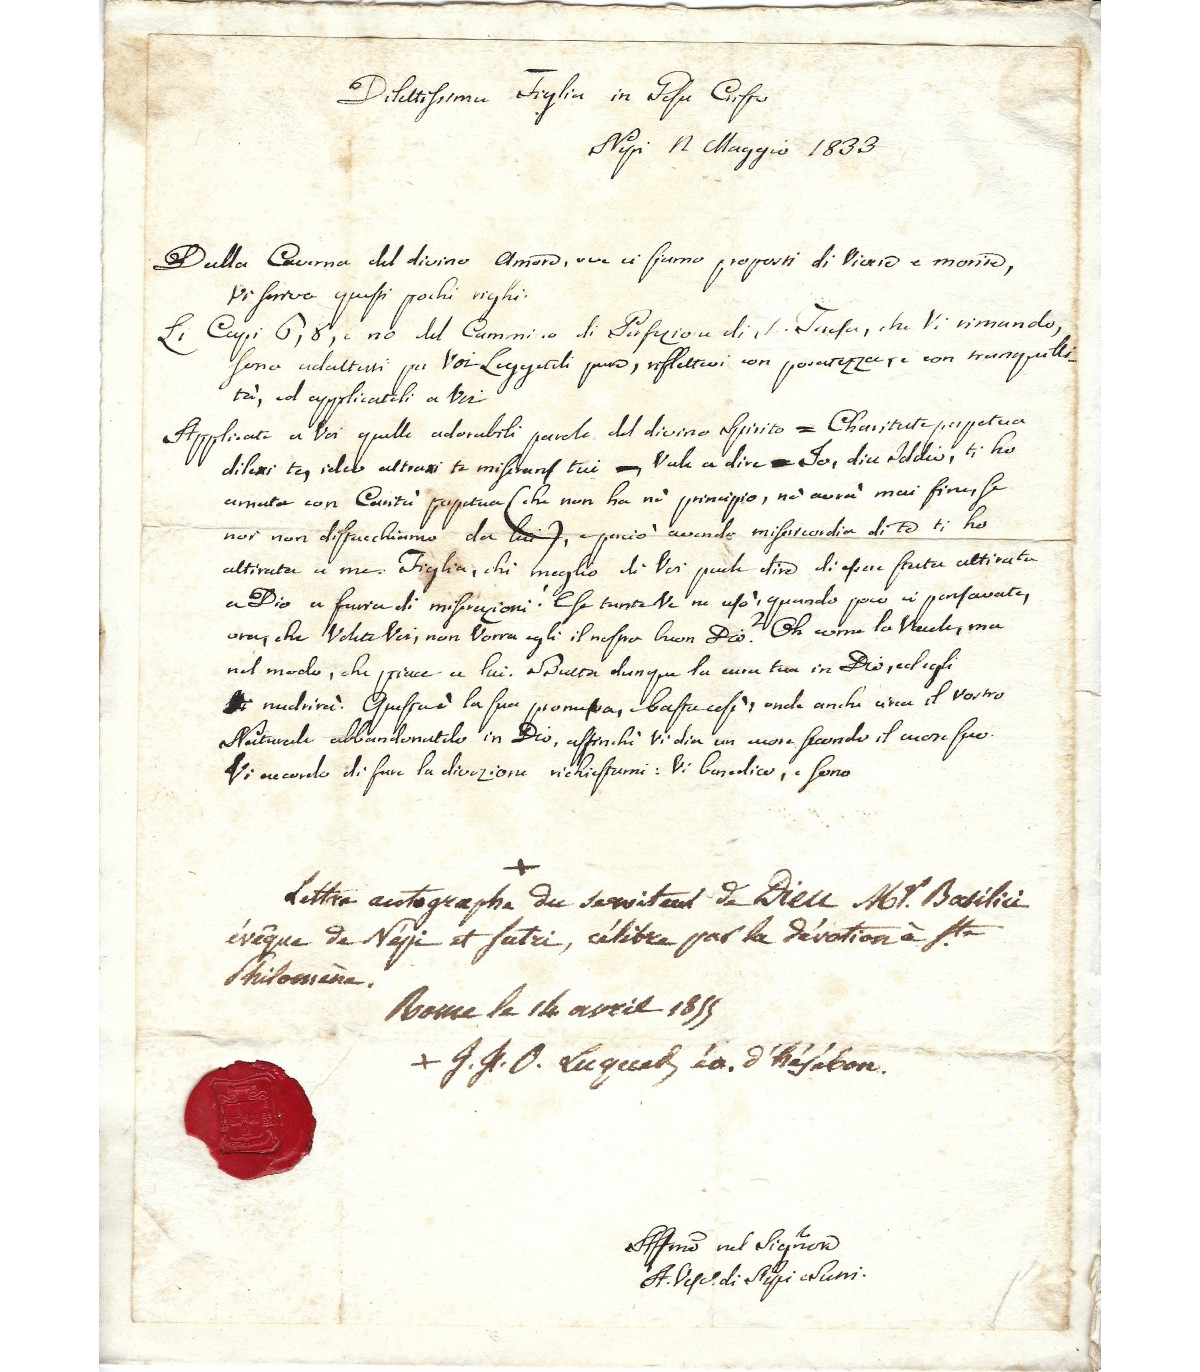 Dilettissima Figlia in Gesu Cristo
Nepi 12 Maggio 1833
Dalla Caverna del divino Amore, ove ci siamo proposti di Vivere e morire,
Vi scrivo questi pochi righi.
Li Capi 6, 8, e no del Cammino di Perfezione di S. Teresa, che Vi rimando,
sono adattissi per Voi Leggeteli pure, riflettevi con posatezza, e con tranquilli-
tà, ed applicateli a Voi
Applicate a Voi quelle adorabili parole del divino Spirito = Charitate perpetua
dilexi te, ideo attraxi te miserans tui =, Vale a dire = Io, dice Iddio, ti ho
amata con Carità perpetua (che non ha nè principio, nè avrà mai fine, se
noi non ci stacchiamo da lui), e perciò avendo misericordia di te ti ho
attirata a me. Figlia, chi meglio di Voi puole dire di esser stata attirata
a Dio a furia di miserazioni! Che tante Ve ne usò, quando poco ci pensavate,
ora, che Volete Voi, non Vorrà egli il nostro buon Dio? Oh come lo Vuole, ma
nel modo, che piace a lui. Butta dunque la cura tua in Dio, ed egli
ti nudrirà. Questa è la sua promessa, e basta così, onde anche circa il Vostro
Naturale abbandonatelo in Dio, affinchè Vi dia un cuore secondo il cuore suo.
Vi ricordo di fare la divozione richiestami: Vi benedico, e sono
+
Lettre autographe du serviteur de Dieu Mgr. Basilici
évêque de Népi et Sutri, célèbre par la dévotion à Ste
Philomène.
Rome le 14 avril 1855
+ J. F. O. Luquet, év. d'Hésebon.
Affmo nel Signore
A. Vesc. di Nepi e Sutri.